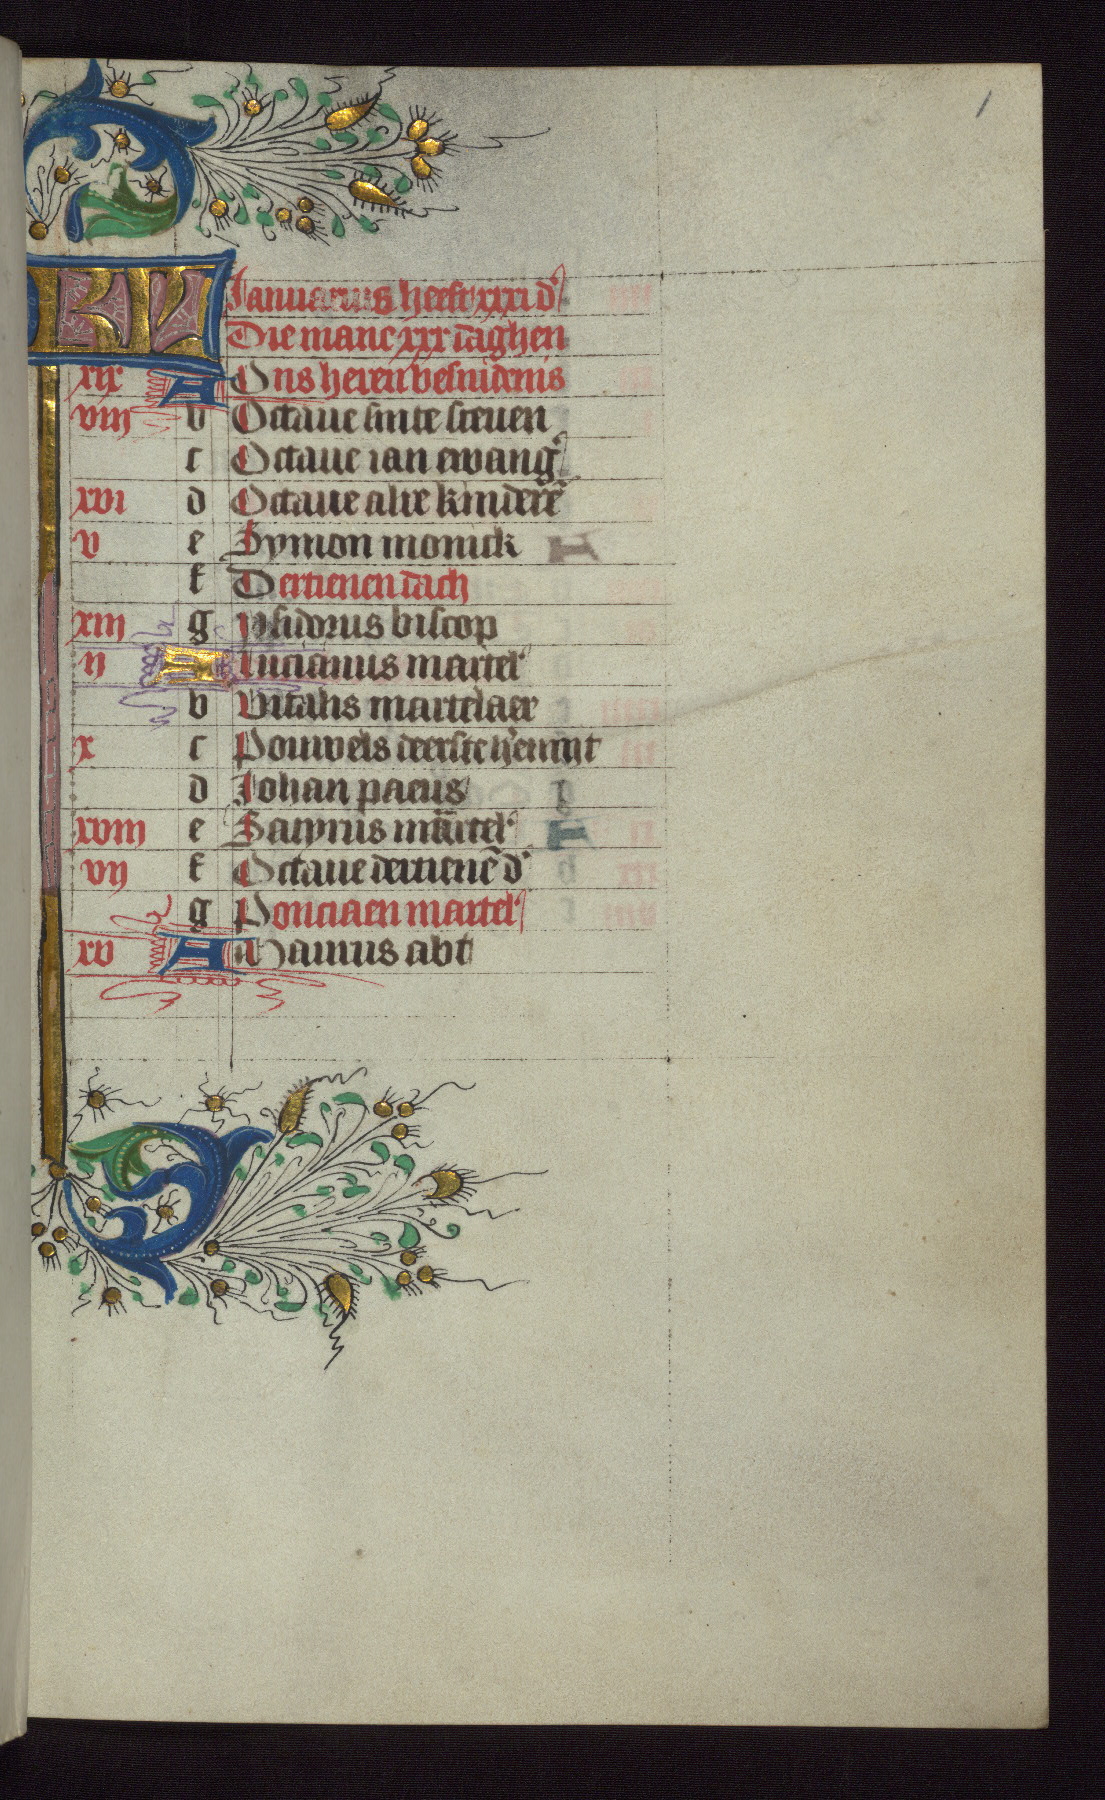 1
KL Januarius heeft xxxi d'
Die mane xxx daghen
xix A Ons heren besnidenis
viii b Octaue sinte steuen
c Octaue ian ewang'
xvi d Octaue alre kinderē
v e Symon monick
f Dertienen dach
xiii g Ysidorus biscop
ii A Lucianus martel'
b Vitalis martelaer
x c Pouwels deerste hermijt
d Johan paeus
xviii e Satyrus martel'
vii f Octaue dertienē d'
g Ponciaen martel'
xv A Maurus abt